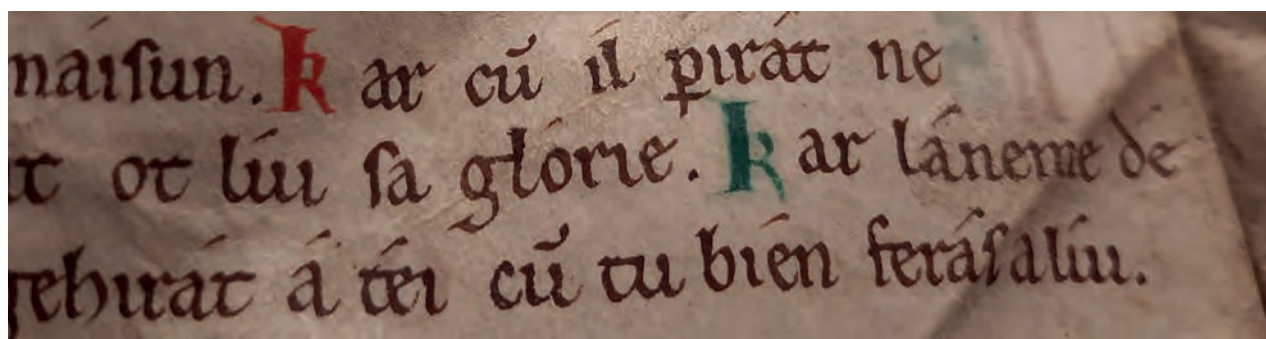 naiſun. kar cū il pirát ne
ot lúi ſa glórie. kar láneme dé
gehirát á téi cū tu bíen ferás a lúi.